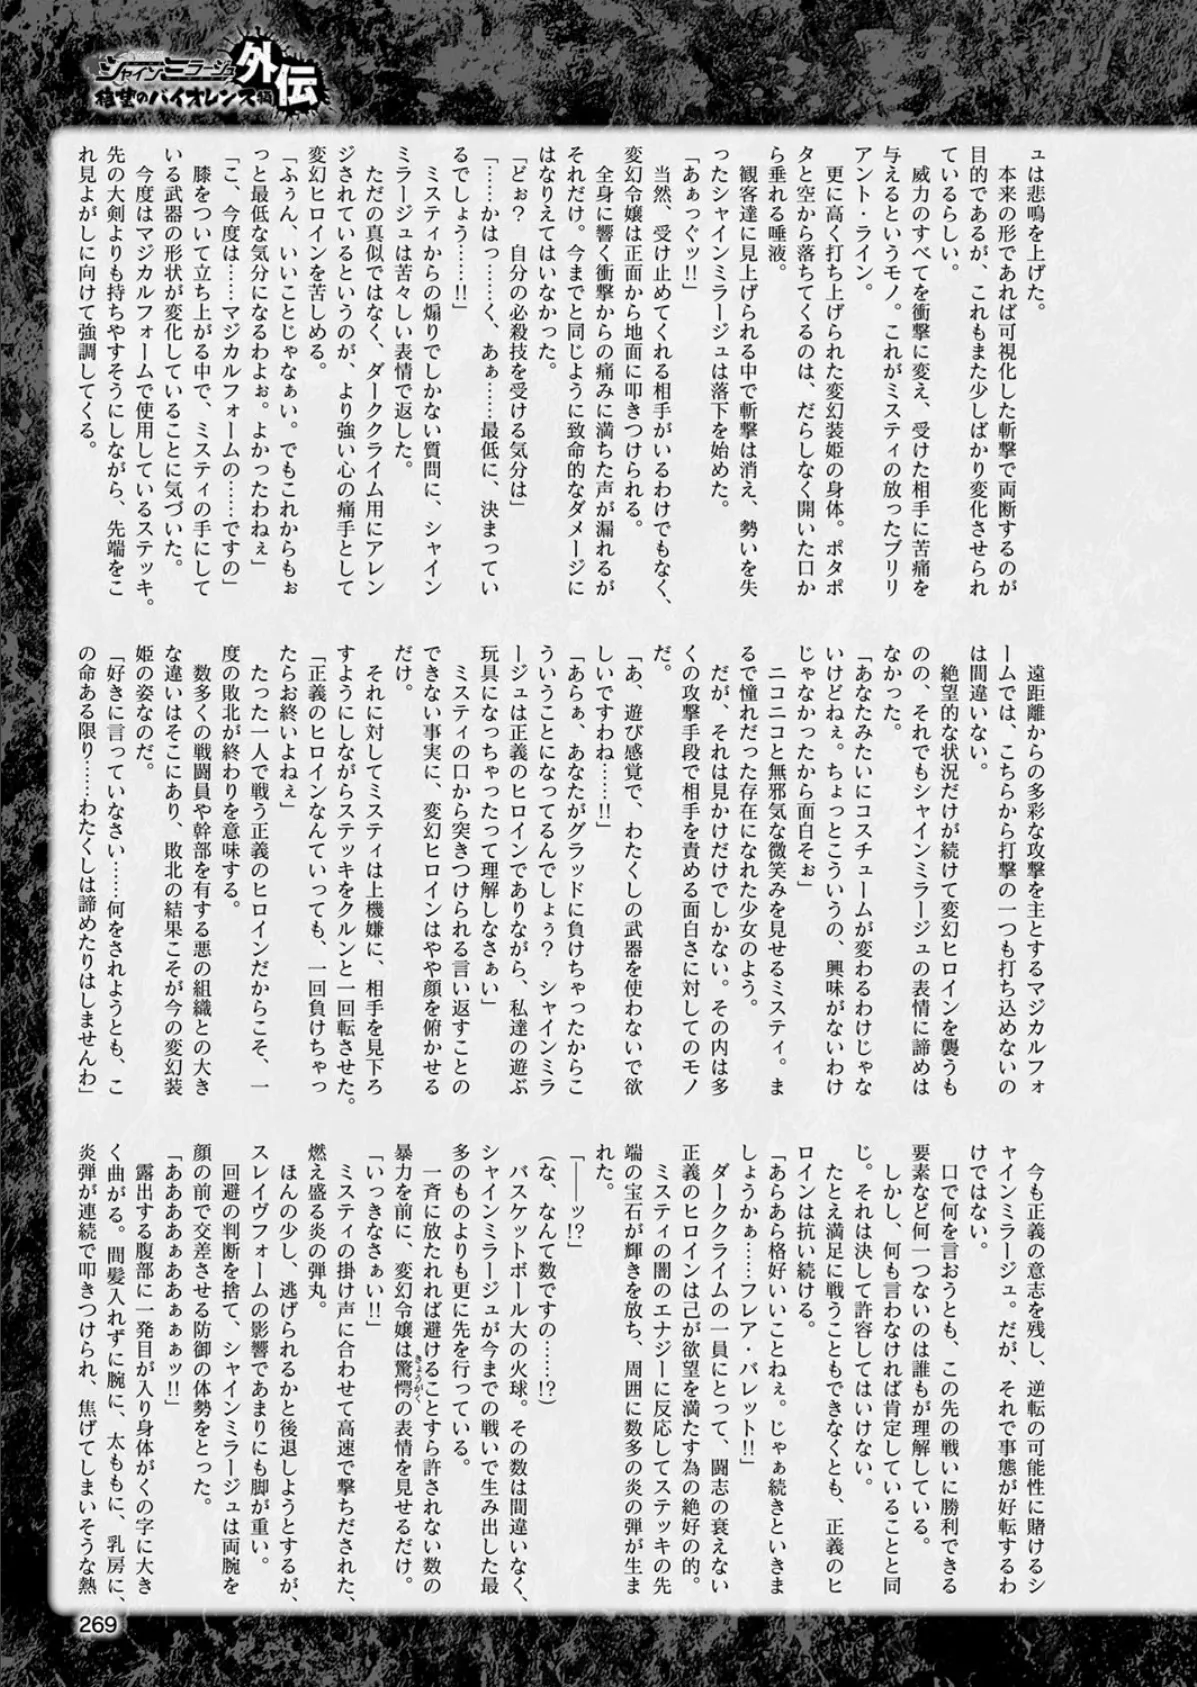 シャインミラージュ
外伝
バイオレンス編
ュは悲鳴を上げた。
　本来の形であれば可視化した斬撃で両断するのが
目的であるが、これもまた少しばかり変化させられ
ているらしい。
　威力のすべてを衝撃に変え、受けた相手に苦痛を
与えるというモノ。これがミスティの放ったブリリ
アント・ライン。
　更に高く打ち上げられた変幻装姫の身体。ポタポ
タと空から落ちてくるのは、だらしなく開いた口か
ら垂れる唾液。
　観客達に見上げられる中で斬撃は消え、勢いを失
ったシャインミラージュは落下を始めた。
「あぁっぐッ!!」
　当然、受け止めてくれる相手がいるわけでもなく、
変幻令嬢は正面から地面に叩きつけられる。
　全身に響く衝撃からの痛みに満ちた声が漏れるが
それだけ。今までと同じように致命的なダメージに
はなりえてはいなかった。
「どぉ？　自分の必殺技を受ける気分は」
「……かはっ……く、あぁ……最低に、決まってい
るでしょう……!!」
　ミスティからの煽りでしかない質問に、シャイン
ミラージュは苦々しい表情で返した。
　ただの真似ではなく、ダーククライム用にアレン
ジされているというのが、より強い心の痛手として
変幻ヒロインを苦しめる。
「ふぅん、いいことじゃなぁい。でもこれからもぉ
っと最低な気分になるわよぉ。よかったわねぇ」
「こ、今度は……マジカルフォームの……ですの」
　膝をついて立ち上がる中で、ミスティの手にして
いる武器の形状が変化していることに気づいた。
　今度はマジカルフォームで使用しているステッキ。
先の大剣よりも持ちやすそうにしながら、先端をこ
れ見よがしに向けて強調してくる。
　遠距離からの多彩な攻撃を主とするマジカルフォ
ームでは、こちらから打撃の一つも打ち込めないの
は間違いない。
　絶望的な状況だけが続けて変幻ヒロインを襲うも
のの、それでもシャインミラージュの表情に諦めは
なかった。
「あなたみたいにコスチュームが変わるわけじゃな
いけどねぇ。ちょっとこういうの、興味がないわけ
じゃなかったから面白そぉ」
　ニコニコと無邪気な微笑みを見せるミスティ。ま
るで憧れだった存在になれた少女のよう。
　だが、それは見かけだけでしかない。その内は多
くの攻撃手段で相手を責める面白さに対してのモノ
だ。
「あ、遊び感覚で、わたくしの武器を使わないで欲
しいですわね……!!」
「あらぁ、あなたがグラッドに負けちゃったからこ
ういうことになってるんでしょぅ？　シャインミラ
ージュは正義のヒロインでありながら、私達の遊ぶ
玩具になっちゃったって理解しなさぁい」
　ミスティの口から突きつけられる言い返すことの
できない事実に、変幻ヒロインはやや顔を俯かせる
だけ。
　それに対してミスティは上機嫌に、相手を見下ろ
すようにしながらステッキをクルンと一回転させた。
「正義のヒロインなんていっても、一回負けちゃっ
たらお終いよねぇ」
　たった一人で戦う正義のヒロインだからこそ、一
度の敗北が終わりを意味する。
　数多くの戦闘員や幹部を有する悪の組織との大き
な違いはそこにあり、敗北の結果こそが今の変幻装
姫の姿なのだ。
「好きに言っていなさい……何をされようとも、こ
の命ある限り……わたくしは諦めたりはしませんわ」
　今も正義の意志を残し、逆転の可能性に賭けるシ
ャインミラージュ。だが、それで事態が好転するわ
けではない。
　口で何を言おうとも、この先の戦いに勝利できる
要素など何一つないのは誰もが理解している。
　しかし、何も言わなければ肯定していることと同
じ。それは決して許容してはいけない。
　たとえ満足に戦うこともできなくとも、正義のヒ
ロインは抗い続ける。
「あらあら格好いいことねぇ。じゃぁ続きといきま
しょうかぁ……フレア・バレット!!」
　ダーククライムの一員にとって、闘志の衰えない
正義のヒロインは己が欲望を満たす為の絶好の的。
　ミスティの闇のエナジーに反応してステッキの先
端の宝石が輝きを放ち、周囲に数多の炎の弾が生ま
れた。
「――ッ!?」
（な、なんて数ですの……!?）
　バスケットボール大の火球。その数は間違いなく、
シャインミラージュが今までの戦いで生み出した最
多のものよりも更に先を行っている。
　一斉に放たれれば避けることすら許されない数の
暴力を前に、変幻令嬢は驚愕（きょうがく）の表情を見せるだけ。
「いっきなさぁい!!」
　ミスティの掛け声に合わせて高速で撃ちだされた、
燃え盛る炎の弾丸。
　ほんの少し、逃げられるかと後退しようとするが、
スレイヴフォームの影響であまりにも脚が重い。
　回避の判断を捨て、シャインミラージュは両腕を
顔の前で交差させる防御の体勢をとった。
「ああああぁああぁぁぁッ!!」
　露出する腹部に一発目が入り身体がくの字に大き
く曲がる。間髪入れずに腕に、太ももに、乳房に、
炎弾が連続で叩きつけられ、焦げてしまいそうな熱
269